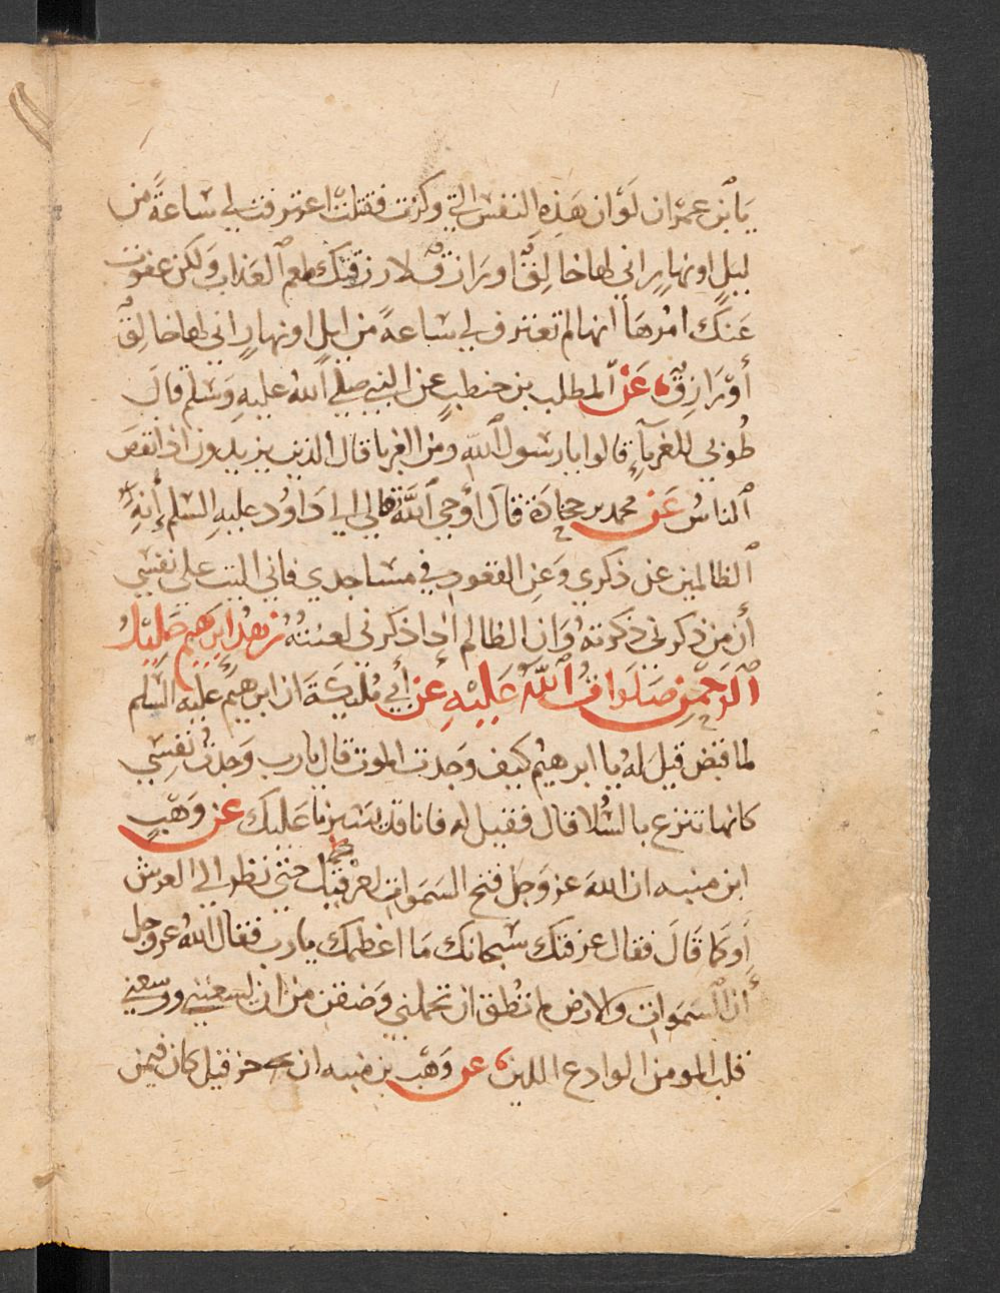 يَا بْن عمرَان لَوْ ان هَذِهِ النفس التي وكزت فقتلت اعترفت لي سَاعَةً من
ليلٍ او نهارٍ اني لها خالِقٌ او رَازقٌ لاذقتك طعم العَذاب وَلكن عفوت
عَنكَ امْرهَا انها لم تعترف لي سَاعةً من ليلٍ او نهارٍ اني لها خالِقٌ
أوْ رَازِقٌ عَنْ المطلب بن حنطبٍ عن النبي صلى اللهُ عليهِ وَسَلم قالَ
طُوبي للغربآءِ قالوا يا رَسُول اللّهِ ومن الغربا قال الذين يزيدون اذا نقصَ
الناسُ عَن محمد بن جحادَة قالَ أوْحي اللَّه تعالي الي دَاوُد عليهِ السّلم أن انهَ
الظالمين عن ذكري وَعنِ القعود في مسَاجدي فاني اليت علي نفسي
أن من ذكرني ذكرتهُ وَان الظالم اذا ذكرني لعنتهُ زهدُ إبرَهيم خَليلُ
الرَحمن صَلوَاتُ اللّه عَليْهِ عن أبي مُليكةَ ان ابرهيمَ عليهِ السَّلم
لما قبض قيلَ لهُ يا ابرهيمُ كيف وَجدت الموت قال يا رب وَجدتُ نفسِي
كانها تنزع بالسُّلا قال فقيل له فانا قد يسّرنا عَليك عن وَهْبٍ
ابن منبه ان اللهَ عز وَجل فتح السَمَوات لحزقيل حتى نظر الي العرش
أو كما قَالَ فقال حزقيل سُبحانك مَا اعظمك يا رب فقال اللّهُ عز وجل
أن السَمَوات وَالارض لم تُطق ان تحملني وَضقن من ان تسعني ووسعني
قلب المومن الوادع اللين عن وَهْب بن منبه ان حزقيل كان فيمن